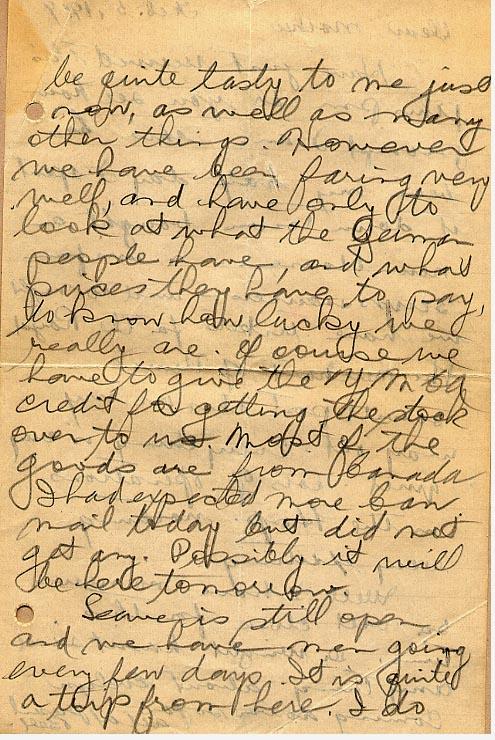 be quite tasty to me just
now, as well as many
other things. However
we have been faring very
well, and have only to
look at what the German
people have, and what
prices they have to pay,
to know how lucky we
really are. Of course we
have to give the Y M CA
credit for getting the stock
over to us. Most of the
goods are from Canada
I had expected more Can
mail today but did not
get any. Possibly it will
be here tomorrow
is still open
and we have men going
every few days. It is quite
a trip from here. I do